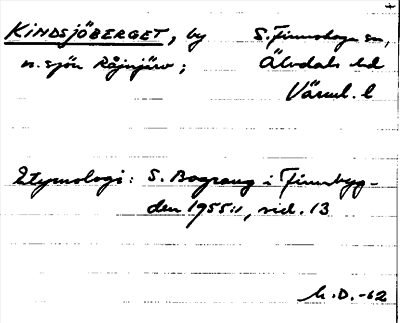 KINDSJÖBERGET, by S. Finnskoga sn,
n. sjön Råjnjärv; Älvdals hd
Värml. l
Etymologi: S. Bograng i Finnbyg-
den 1955:1, sid. 13
M.D.-62